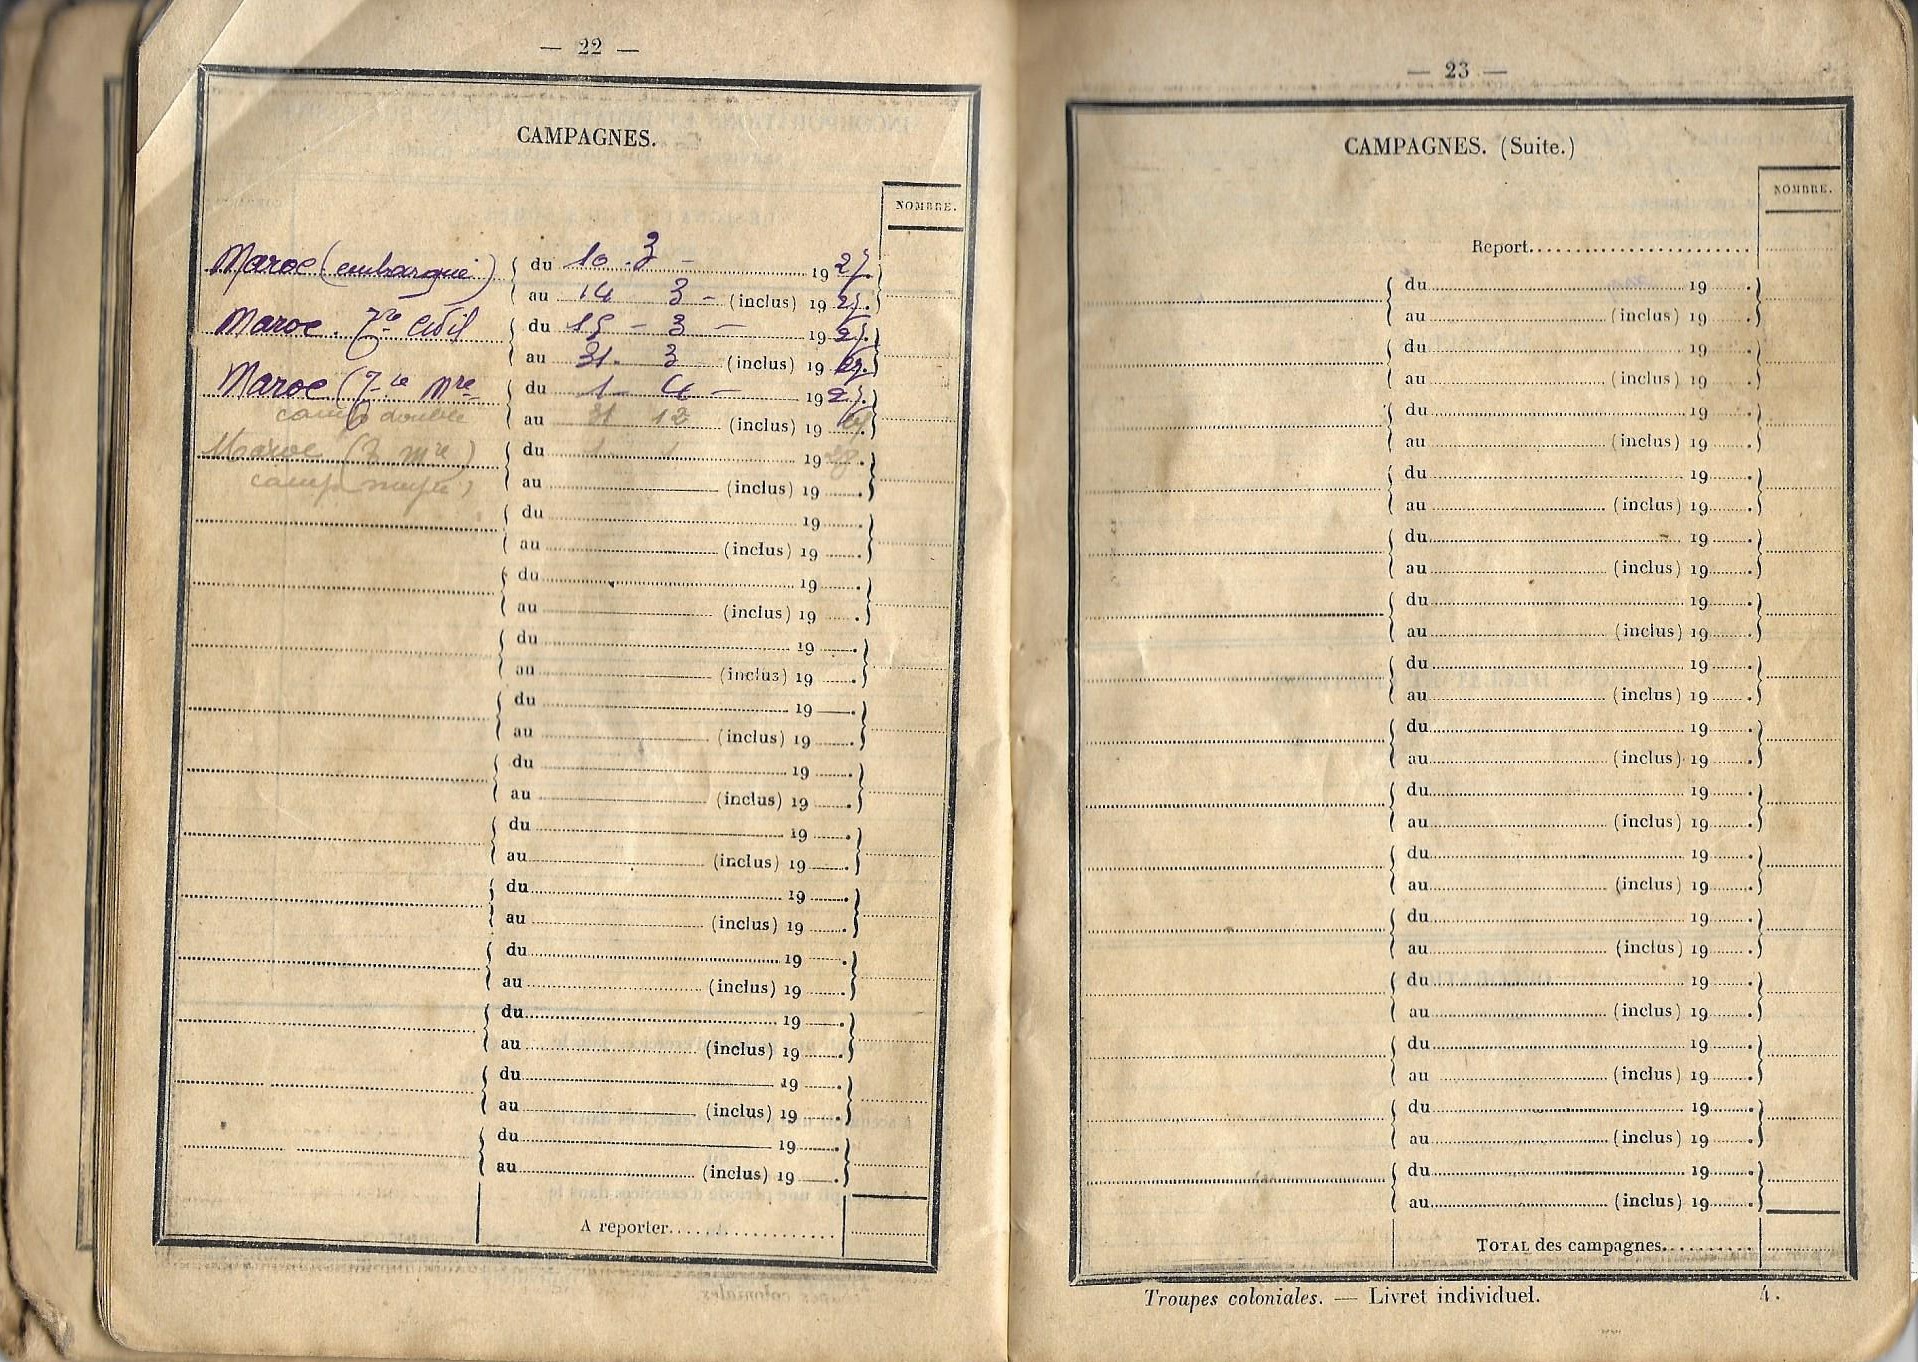 — 22 —
CAMPAGNES.
NOMBRE.
Maroc (embarqué) du 10 . 3 - 1927.
au 14 3 - (inclus) 1927.
Maroc . Zne Civil du 15 - 3 - 1927.
au 31 . 3 (inclus) 1927.
Maroc (Zne Mre du 1 - 4 - 1927.
camp double au 31 12 (inclus) 19
Maroc (Z Mre) du 1 . 1 1928.
camp au (inclus) 19
du 19
au (inclus) 19
du 19
au (inclus) 19
du 19
au (inclus) 19
du 19
au (inclus) 19
du 19
au (inclus) 19
du 19
au (inclus) 19
du 19
au (inclus) 19
du 19
au (inclus) 19
du 19
au (inclus) 19
du 19
au (inclus) 19
du 19
au (inclus) 19
A reporter
— 23 —
CAMPAGNES. (Suite.)
NOMBRE.
Report
du 19
au (inclus) 19
du 19
au (inclus) 19
du 19
au (inclus) 19
du 19
au (inclus) 19
du 19
au (inclus) 19
du 19
au (inclus) 19
du 19
au (inclus) 19
du 19
au (inclus) 19
du 19
au (inclus) 19
du 19
au (inclus) 19
du 19
au (inclus) 19
du 19
au (inclus) 19
du 19
au (inclus) 19
du 19
au (inclus) 19
du 19
au (inclus) 19
TOTAL des campagnes
Troupes coloniales. — Livret individuel. 4.